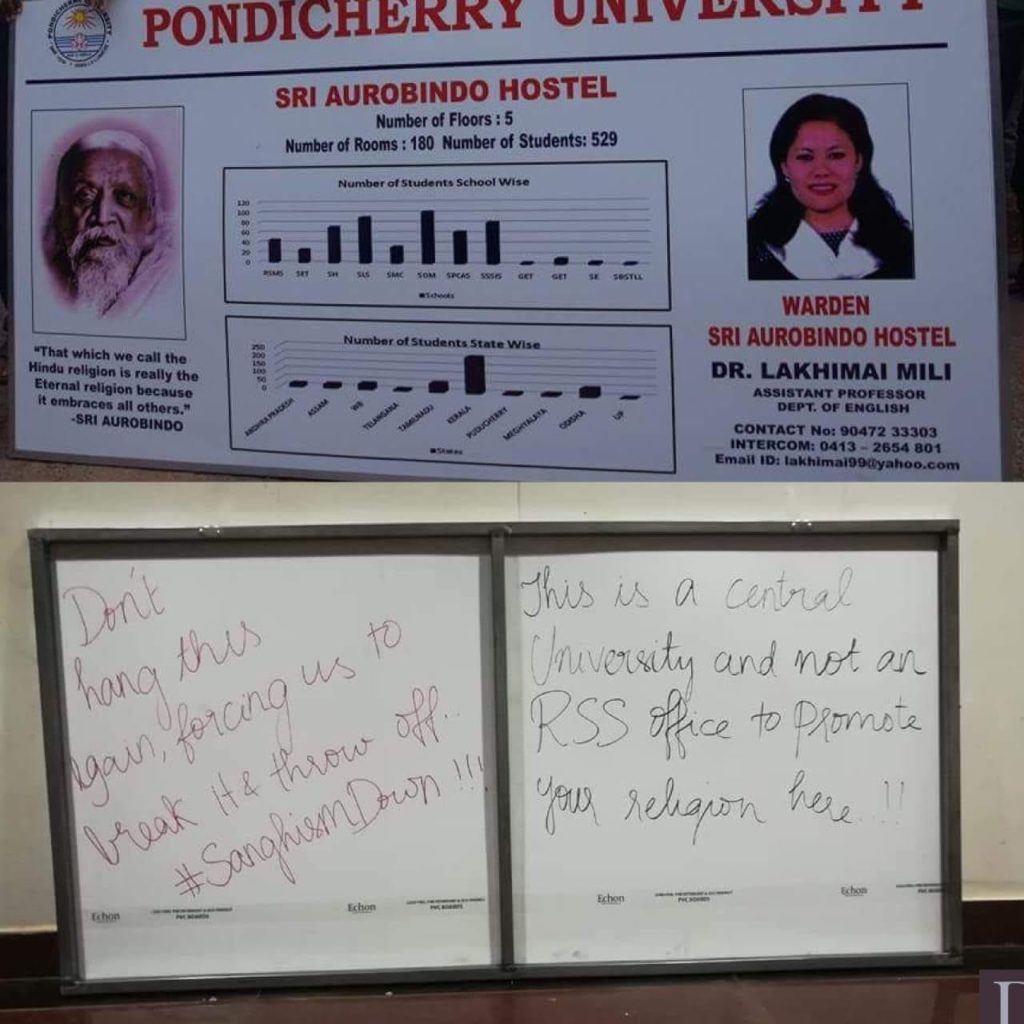 PONDICHERRY UNIVERSITY
PONDICHERRY UNIVERSITY
SRI AUROBINDO HOSTEL
Number of Floors : 5
Number of Rooms : 180 Number of Students: 529
Number of Students School Wise
120
100
80
60
40
20
0
RSMS SET SH SLS SMC SOM SPCAS SSSIS GET GET SE SBSTLL
■Schools
Number of Students State Wise
250
200
150
100
50
0
ANDHRA PRADESH ASSAM WB TELANGANA TAMILNADU KERALA PUDUCHERRY MEGHYALAYA ODISHA UP
■States
"That which we call the
Hindu religion is really the
Eternal religion because
it embraces all others."
-SRI AUROBINDO
WARDEN
SRI AUROBINDO HOSTEL
DR. LAKHIMAI MILI
ASSISTANT PROFESSOR
DEPT. OF ENGLISH
CONTACT No: 90472 33303
INTERCOM: 0413 – 2654 801
Email ID: lakhimai99@yahoo.com
Don't
hang this
again, forcing us to
break it & throw off..
#SanghismDown !!!
This is a central
University and not an
RSS office to promote
your religion here..!!
Echon
PVC BOARDS
Echon
PVC BOARDS
Echon
PVC BOARDS
Echon